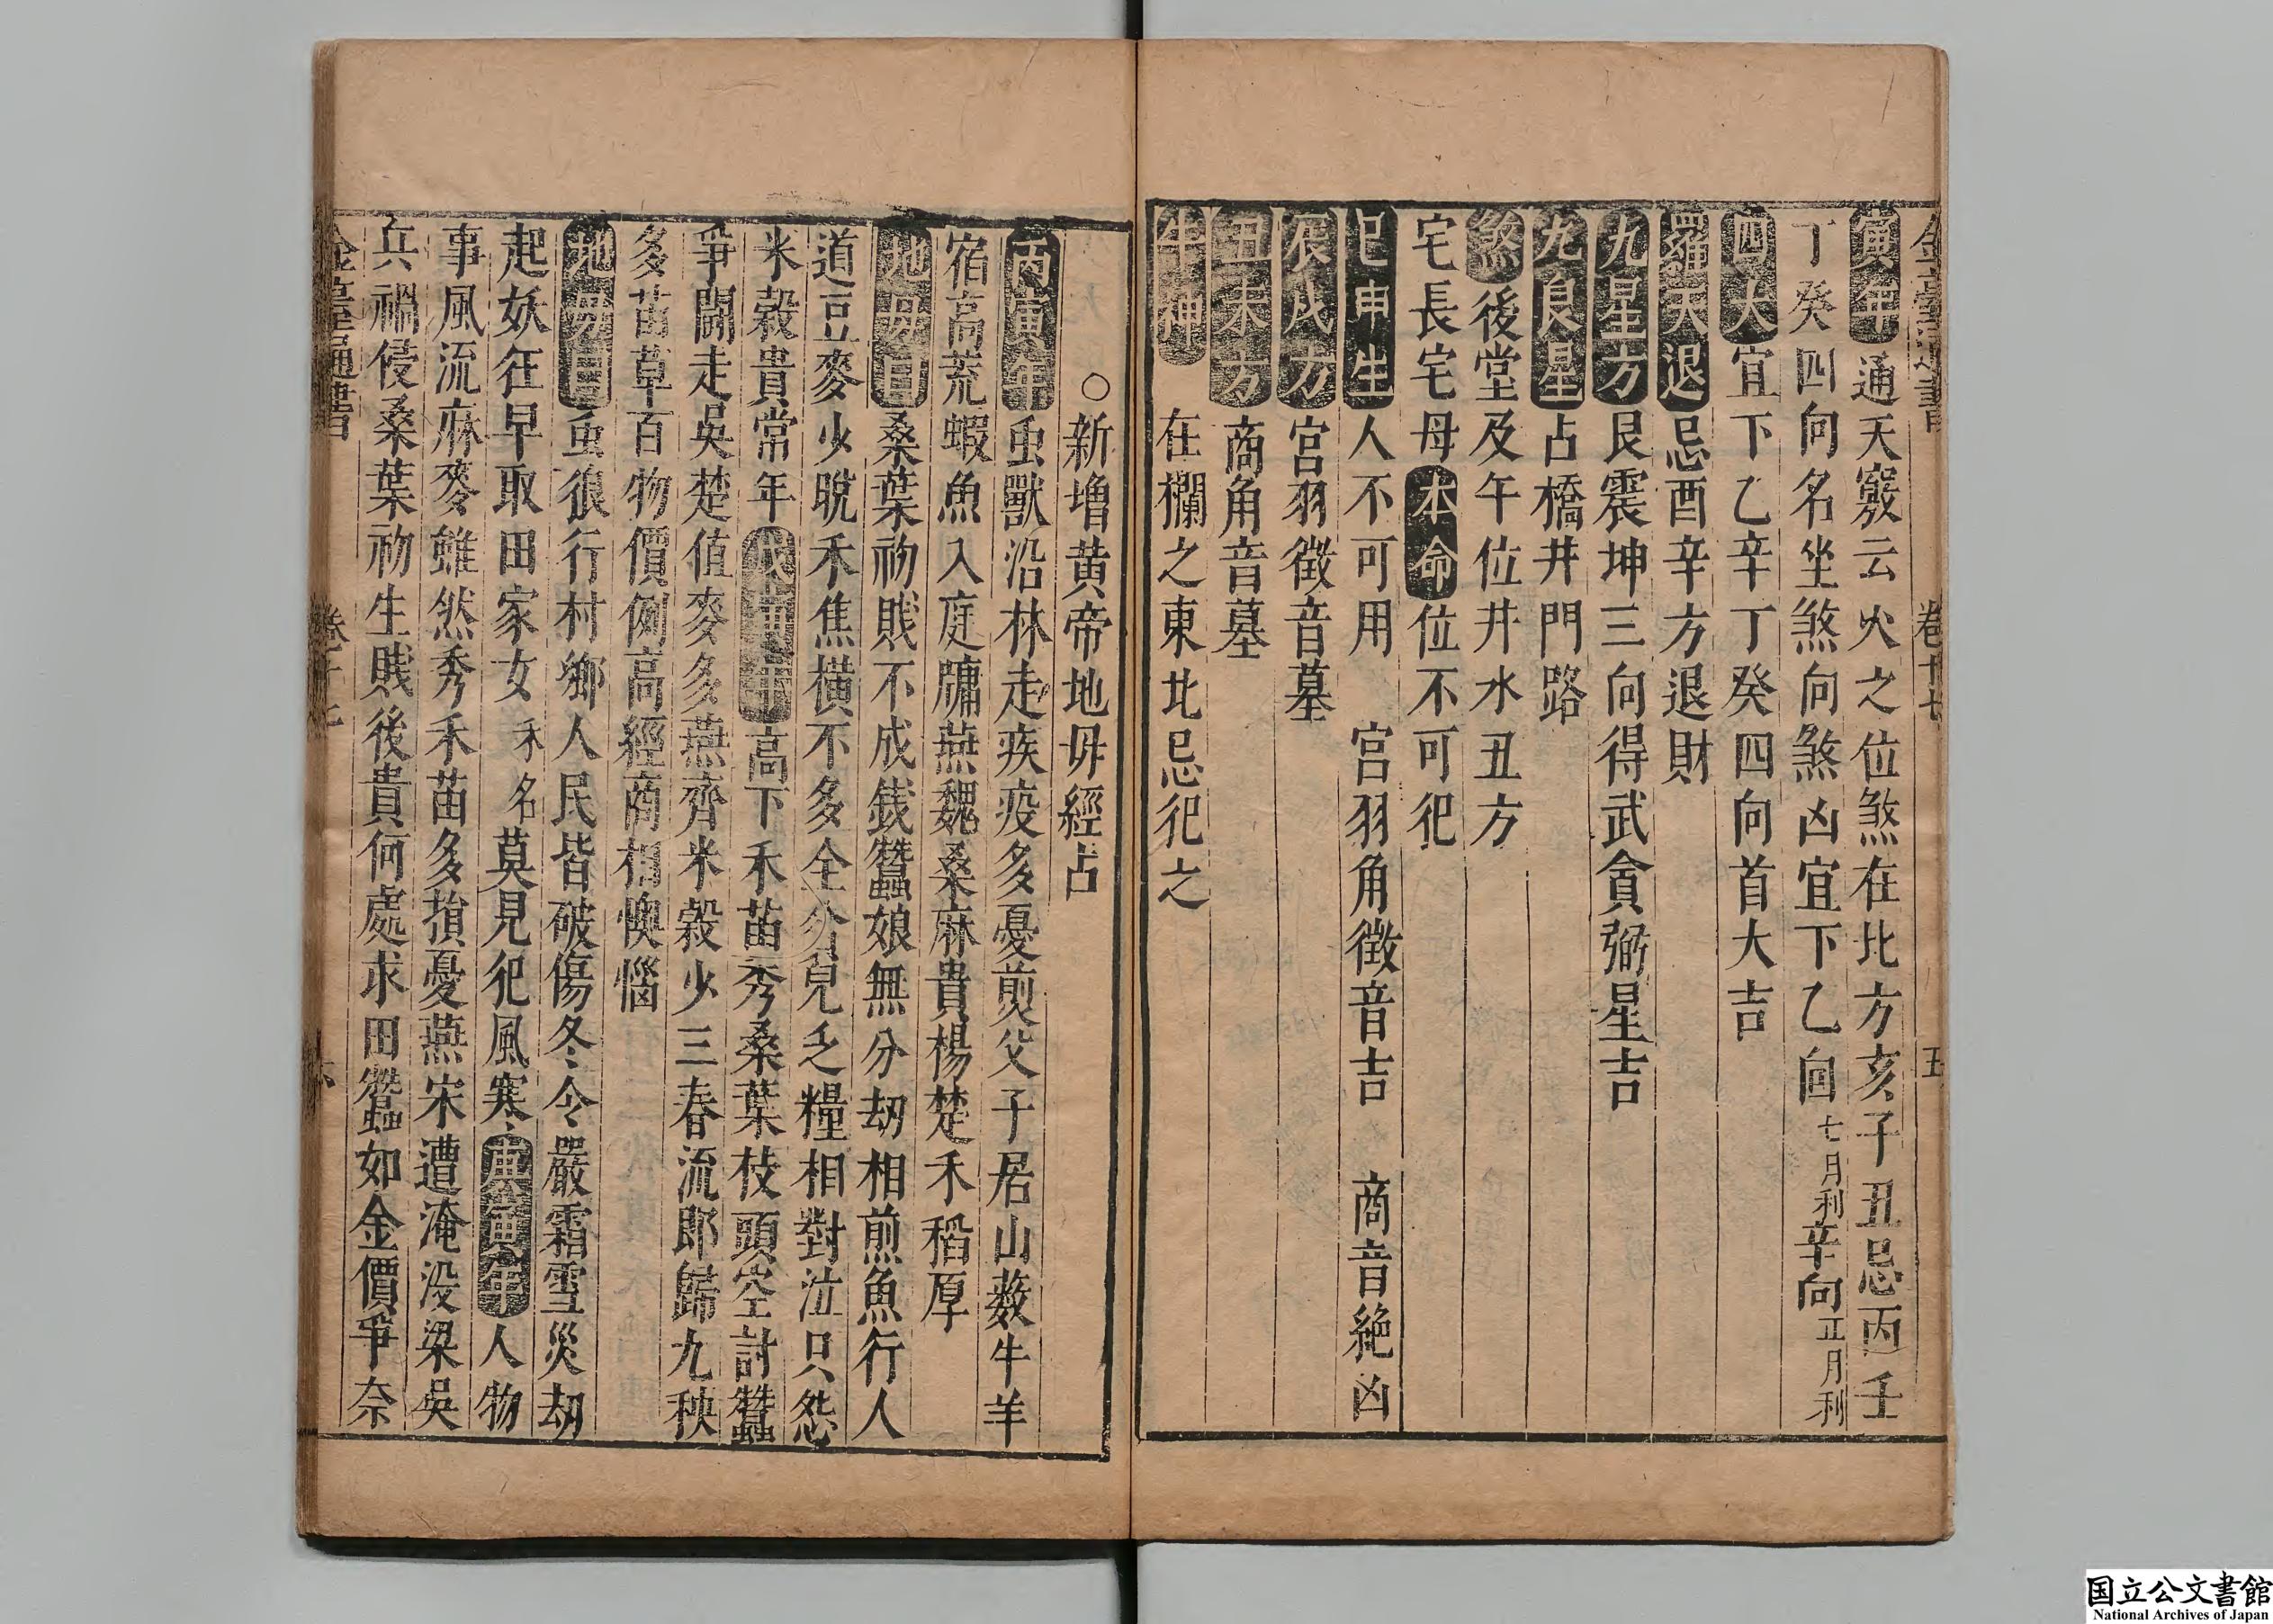 卷十七 五
寅年通天竅云火之位煞在北方亥子丑忌丙壬
丁癸四向名坐煞向煞凶宜下乙向七月利辛向正月利
四大宜下乙辛丁癸四向首大吉
羅天退忌酉辛方退財
九星方艮震坤三向得武貪弼星吉
九良星占橋井門路
煞後堂及午位井水丑方
宅長宅母本命位不可犯
巳申生人不可用 宮羽角徵音吉 商音絕凶
辰戌方宮羽徵音墓
丑未方商角音墓
牛神在欄之東北忌犯之
○新增黃帝地毋經占
丙寅年虫獸沿林走疾疫多憂煎父子居山薮牛羊
宿高荒蝦魚入庭牗燕魏桑麻貴楊楚禾稻厚
地毋曰桑葉初賤不成錢蠶娘無分刧相煎魚行人
道豆麥少晚禾焦橫不多全家兒乏糧相對泣只怨
米穀貴常年戊寅年高下禾苗秀桑葉枝頭空討蠶
爭鬪走吳楚值麥多燕齊米穀少三春流郎歸九秧
多苗草百物價例高經商相懊惱
地毋曰虫狼行村鄉人民皆破傷冬令嚴霜雪災刧
起妖在早取田家女禾名莫見犯風寒庚寅年人物
事風流麻麥雖然秀禾苗多損憂燕宋遭淹没梁吳
兵禍侵桑葉初生賤後貴何處求田蠶如金價爭奈
通書
国立公文書館
National Archives of Japan